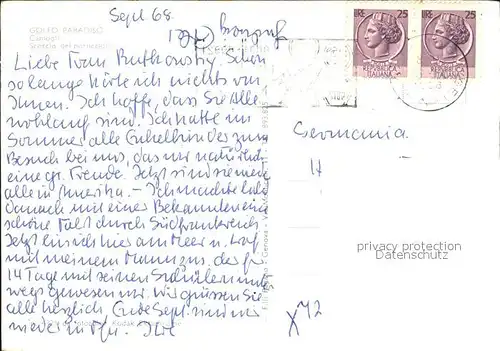 Sept 68
GOLFO PARADISO
Camogli
Liebe Frau Rutkowsky. Schon
so lange hörte ich nichts von
Ihnen. Ich hoffe, dass Sie Alle
wohlauf sind. Ich hatte im
Sommer alle Enkelkinder zum
Besuch bei uns, das war natürlich
eine gr. Freude. Jetzt sind sie wieder
alle in Amerika. – Ich machte bald
danach mit einer Bekannten eine
schöne Fahrt durch Südfrankreich.
Jetzt bin ich hier am Meer u. traf
mich mit meinem Mann, der für
14 Tage mit seinen Schülern unter-
wegs gewesen ist. Wir grüssen Sie
alle herzlich, Ende Sept. sind wir
wieder in
Kodak
LIRE 25
LIRE 25
Germania
privacy protection
Datenschutz
X42